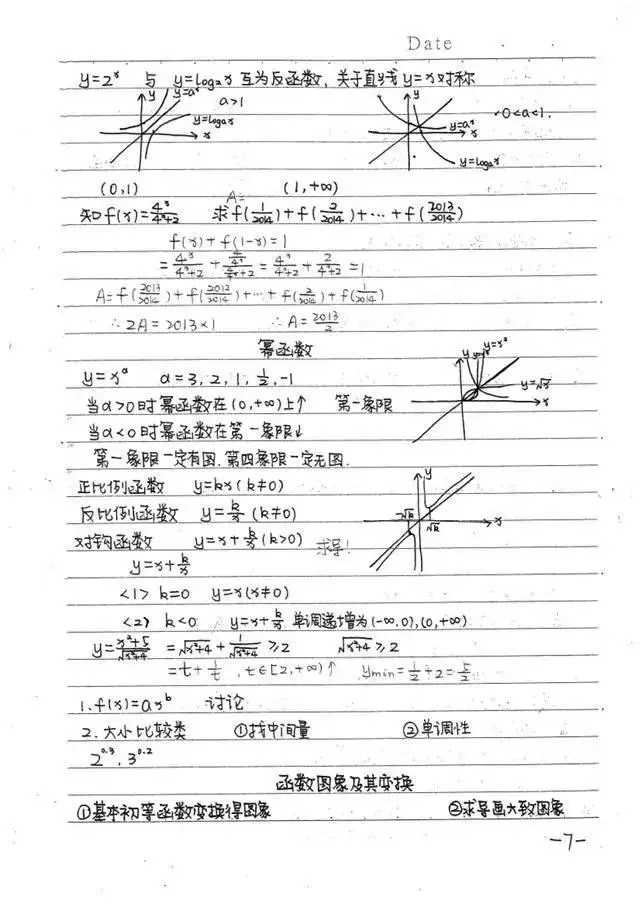 Date
y=2ˣ 与 y=log₂x 互为反函数, 关于直线 y=x 对称
y y=aˣ a>1 y=logax x
y 0<a<1. y=aˣ x y=logax
(0,1) (1,+∞)
知 f(x)=4ˣ/(4ˣ+2) A= 求 f(1/2014)+f(2/2014)+…+f(2013/2014)
f(x)+f(1-x)=1
=4ˣ/(4ˣ+2)+(4/4ˣ)/(4/4ˣ+2)=4ˣ/(4ˣ+2)+2/(4ˣ+2)=1
A=f(2013/2014)+f(2012/2014)+…+f(2/2014)+f(1/2014)
∴2A=2013×1 ∴A=2013/2
幂函数
y=xᵃ a=3, 2, 1, 1/2, -1
y y=√x x
当a>0时幂函数在(0,+∞)上↑ 第一象限
当a<0时幂函数在第一象限↓
第一象限一定有图. 第四象限一定无图.
正比例函数 y=kx(k≠0)
反比例函数 y=k/x (k≠0)
对钩函数 y=x+k/x(k>0) 求导!
y -√k √k x
y=x+k/x
<1> k=0 y=x(x≠0)
<2> k<0 y=x+k/x 单调递增为(-∞,0),(0,+∞)
y=(x²+5)/√(x²+4) =√(x²+4)+1/√(x²+4)≥2 √(x²+4)≥2
=t+1/t, t∈[2,+∞)↑ ymin=1/2+2=5/2
1. f(x)=axᵇ 讨论
2. 大小比较类 ①找中间量 ②单调性
2^0.3, 3^0.2
函数图象及其变换
①基本初等函数变换得图象 ②求导画大致图象
-7-